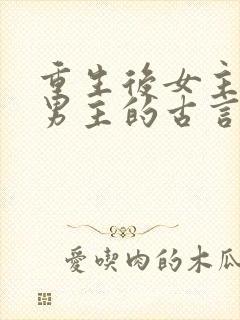 重生後女主
男主的古言
愛喫肉的木瓜